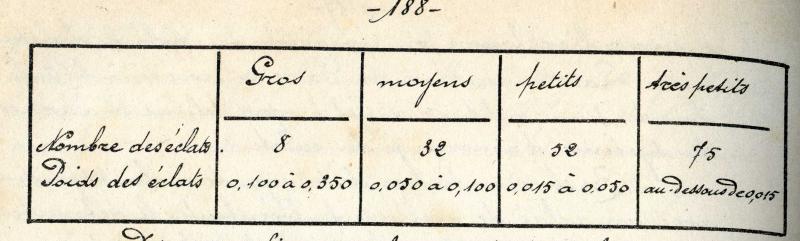 -188-
Gros moyens petits très petits
Nombre des éclats. 8 32 52 75
Poids des éclats 0,100 à 0,350 0,050 à 0,100 0,015 à 0,050 au-dessous de 0,015